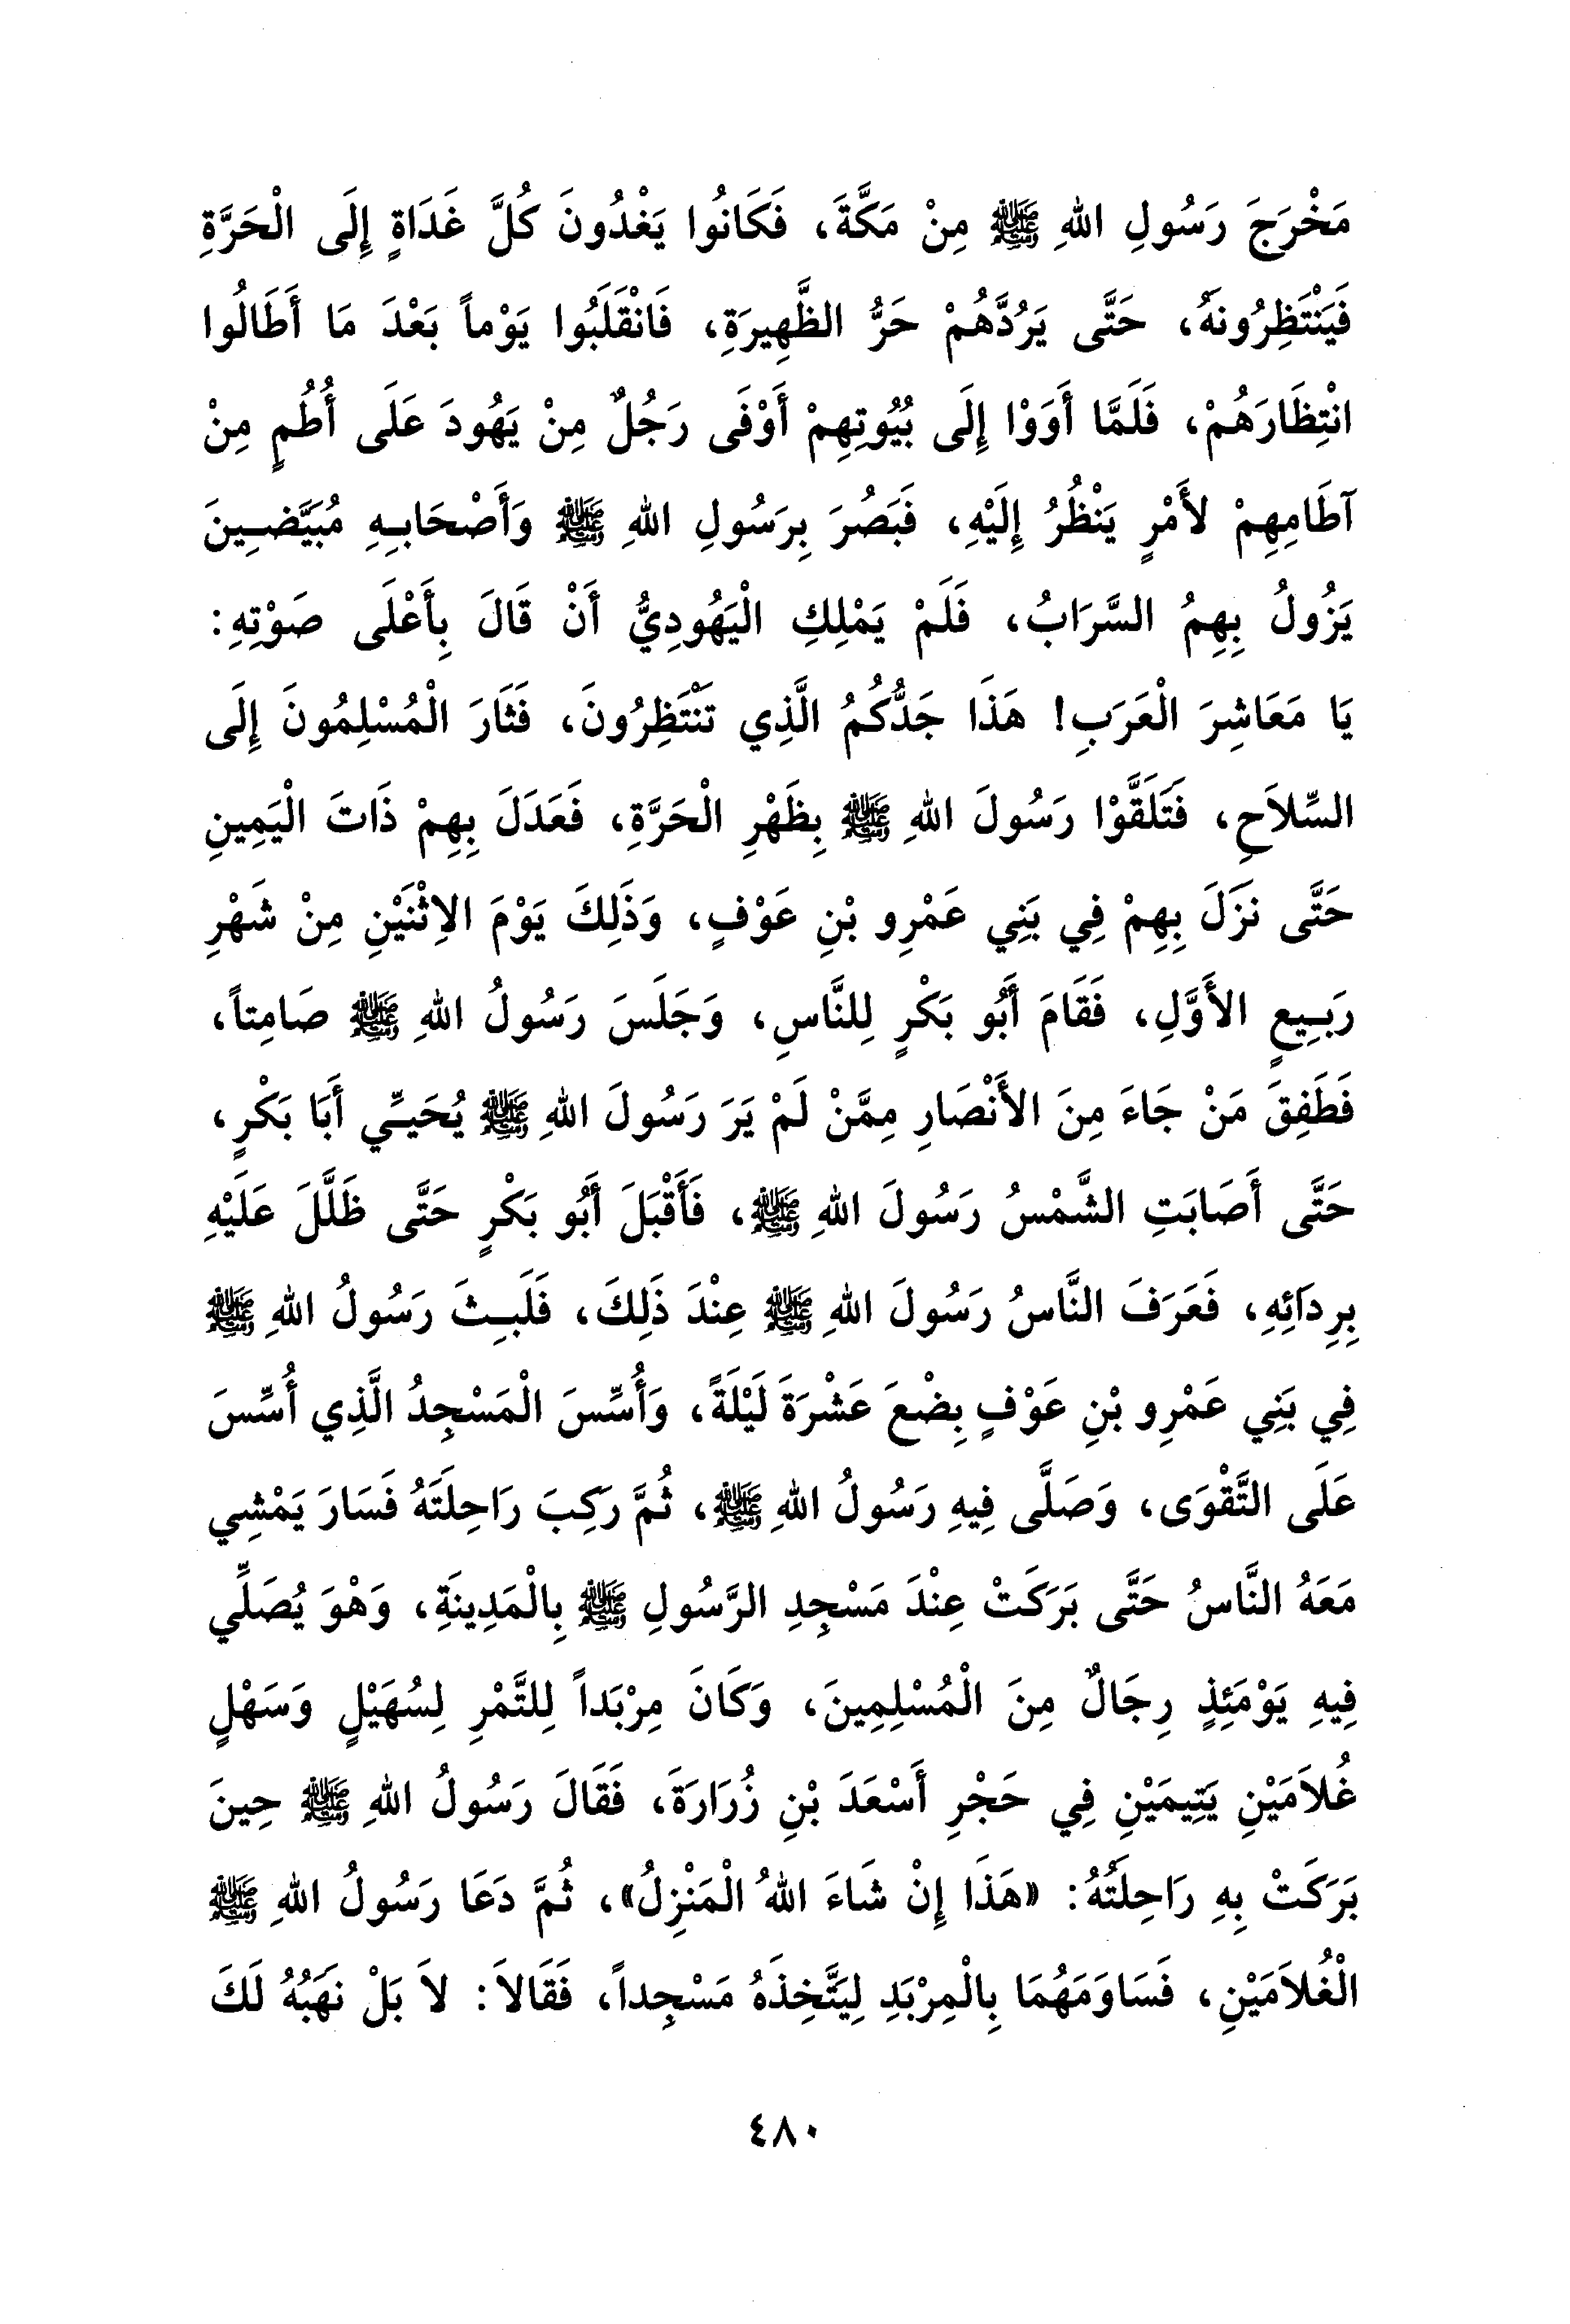 مَخْرَجَ رَسُولِ اللهِ ﷺ مِنْ مَكَّةَ، فَكَانُوا يَغْدُونَ كُلَّ غَدَاةٍ إِلَى الْحَرَّةِ
فَيَنْتَظِرُونَهُ، حَتَّى يَرُدَّهُمْ حَرُّ الظَّهِيرَةِ، فَانْقَلَبُوا يَوْماً بَعْدَ مَا أَطَالُوا
انْتِظَارَهُمْ، فَلَمَّا أَوَوْا إِلَى بُيُوتِهِمْ أَوْفَى رَجُلٌ مِنْ يَهُودَ عَلَى أُطُمٍ مِنْ
آطَامِهِمْ لأَمْرٍ يَنْظُرُ إِلَيْهِ، فَبَصُرَ بِرَسُولِ اللهِ ﷺ وَأَصْحَابِهِ مُبَيَّضِينَ
يَزُولُ بِهِمُ السَّرَابُ، فَلَمْ يَمْلِكِ الْيَهُودِيُّ أَنْ قَالَ بِأَعْلَى صَوْتِهِ:
يَا مَعَاشِرَ الْعَرَبِ! هَذَا جَدُّكُمُ الَّذِي تَنْتَظِرُونَ، فَثَارَ الْمُسْلِمُونَ إِلَى
السِّلاَحِ، فَتَلَقَّوْا رَسُولَ اللهِ ﷺ بِظَهْرِ الْحَرَّةِ، فَعَدَلَ بِهِمْ ذَاتَ الْيَمِينِ
حَتَّى نَزَلَ بِهِمْ فِي بَنِي عَمْرِو بْنِ عَوْفٍ، وَذَلِكَ يَوْمَ الاِثْنَيْنِ مِنْ شَهْرِ
رَبِيعٍ الأَوَّلِ، فَقَامَ أَبُو بَكْرٍ لِلنَّاسِ، وَجَلَسَ رَسُولُ اللهِ ﷺ صَامِتاً،
فَطَفِقَ مَنْ جَاءَ مِنَ الأَنْصَارِ مِمَّنْ لَمْ يَرَ رَسُولَ اللهِ ﷺ يُحَيِّي أَبَا بَكْرٍ،
حَتَّى أَصَابَتِ الشَّمْسُ رَسُولَ اللهِ ﷺ، فَأَقْبَلَ أَبُو بَكْرٍ حَتَّى ظَلَّلَ عَلَيْهِ
بِرِدَائِهِ، فَعَرَفَ النَّاسُ رَسُولَ اللهِ ﷺ عِنْدَ ذَلِكَ، فَلَبِثَ رَسُولُ اللهِ ﷺ
فِي بَنِي عَمْرِو بْنِ عَوْفٍ بِضْعَ عَشْرَةَ لَيْلَةً، وَأُسِّسَ الْمَسْجِدُ الَّذِي أُسِّسَ
عَلَى التَّقْوَى، وَصَلَّى فِيهِ رَسُولُ اللهِ ﷺ، ثُمَّ رَكِبَ رَاحِلَتَهُ فَسَارَ يَمْشِي
مَعَهُ النَّاسُ حَتَّى بَرَكَتْ عِنْدَ مَسْجِدِ الرَّسُولِ ﷺ بِالْمَدِينَةِ، وَهْوَ يُصَلِّي
فِيهِ يَوْمَئِذٍ رِجَالٌ مِنَ الْمُسْلِمِينَ، وَكَانَ مِرْبَداً لِلتَّمْرِ لِسُهَيْلٍ وَسَهْلٍ
غُلاَمَيْنِ يَتِيمَيْنِ فِي حَجْرِ أَسْعَدَ بْنِ زُرَارَةَ، فَقَالَ رَسُولُ اللهِ ﷺ حِينَ
بَرَكَتْ بِهِ رَاحِلَتُهُ: «هَذَا إِنْ شَاءَ اللهُ الْمَنْزِلُ»، ثُمَّ دَعَا رَسُولُ اللهِ ﷺ
الْغُلاَمَيْنِ، فَسَاوَمَهُمَا بِالْمِرْبَدِ لِيَتَّخِذَهُ مَسْجِداً، فَقَالاَ: لاَ بَلْ نَهَبُهُ لَكَ
٤٨٠